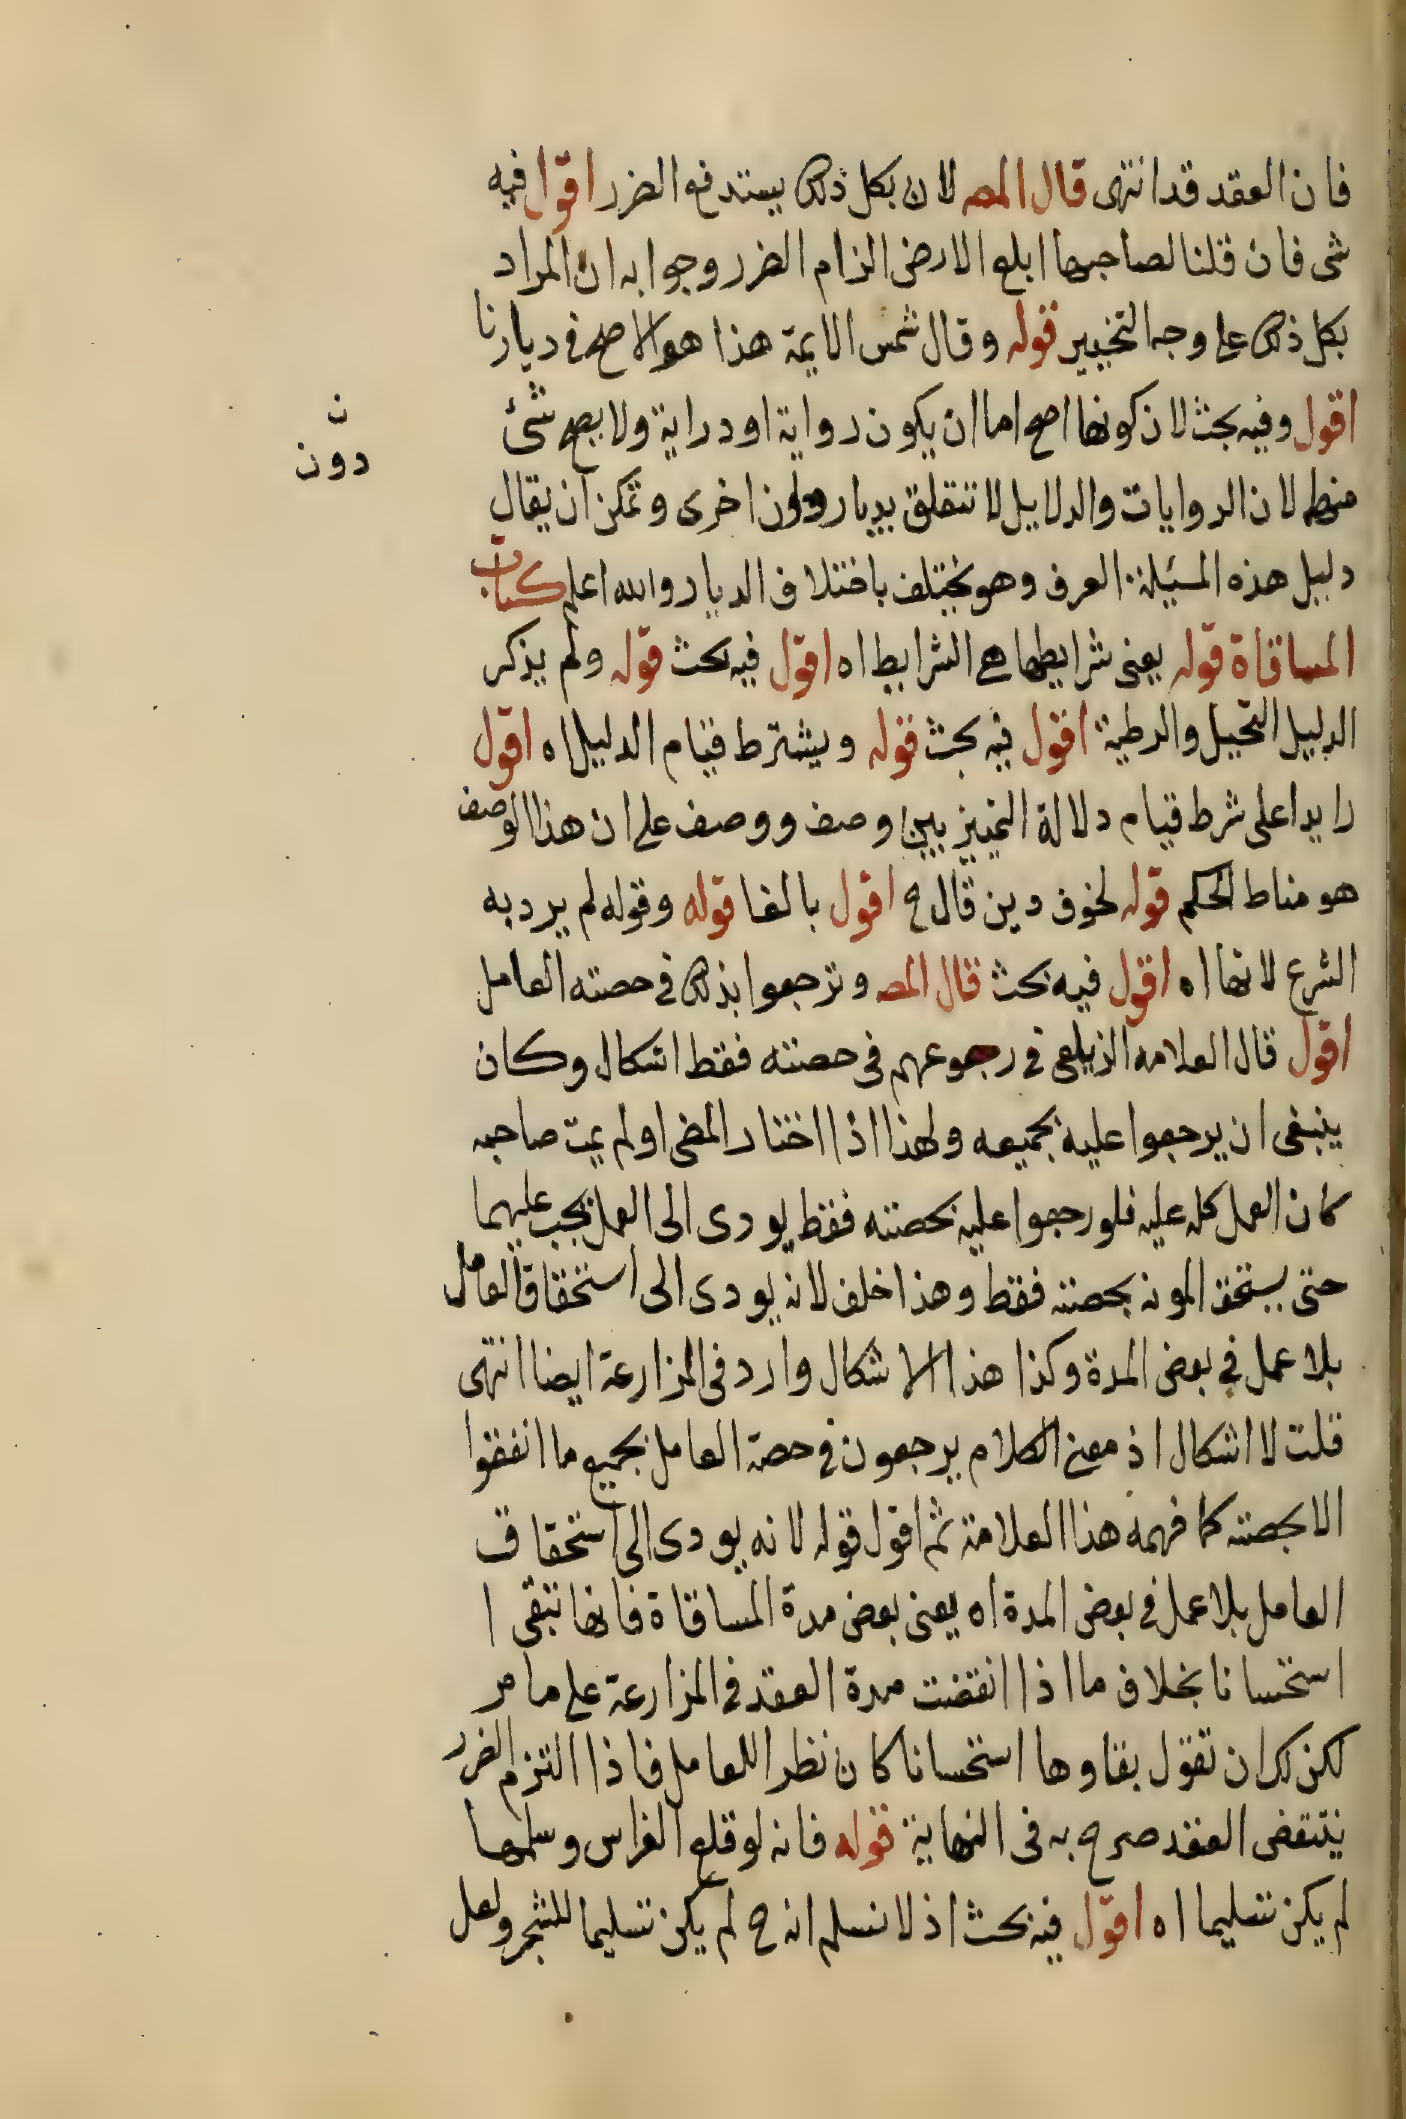 فان العقد قد انتهى قال المصـ لان بكل ذلك يستدفع الضرر اقول فيه
شى فان قلنا لصاحبها ابلع الارض الزام الضرر وجوابه ان المراد
بكل ذلك على وجه التخيير قوله وقال شمس الايمة هذا هو الاصح فى ديارنا
اقول وفيه بحث لان كونها اصح اما ان يكون رواية او دراية ولا يصح شئ
ن
دون
منهما لان الروايات والدلايل لا تتعلق بديار دون اخرى ويمكن ان يقال
دليل هذه المسئلة العرف وهو يختلف باختلاف الديار والله اعلم كتاب
المساقاة قوله يعنى شرايطها هى الشرايط اه اقول فيه بحث قوله ولم يذكر
الدليل النخيل والرطبة اقول فيه بحث قوله ويشترط قيام الدليل اه اقول
زايدا على شرط قيام دلالة التمييز بين وصف ووصف على ان هذا الوصف
هو مناط الحكم قوله لخوف دين قال ح اقول بالفا قوله وقوله لم يرد به
الشرع لانها اه اقول فيه بحث قال المصـ وترجعوا بذلك فى حصته العامل
اقول قال العلامه الزيلعى فى رجوعهم فى حصته فقط اشكال وكان
ينبغى ان يرجعوا عليه بجميعه ولهذا اذا اختار المضى او لم يمت صاحبه
كان العمل كله عليه فلو رجعوا عليه بحصته فقط يودى الى العمل يجب عليهما
حتى يستحق المونه بحصته فقط وهذا خلف لانه يودى الى استحقاق العامل
بلا عمل فى بعض المدة وكذا هذا الاشكال وارد فى المزارعة ايضا انتهى
قلت لا اشكال اذ معنى الكلام يرجعون فى حصة العامل بجميع ما انفقوا
الا بحصته كما فهمه هذا العلامة ثم اقول قوله لانه يودى الى استحقاق
العامل بلا عمل فى بعض المدة اه يعنى بعض مدة المساقاة فانها تبقى ا
استحسانا بخلاف ما اذا انقضت مدة العقد فى المزارعة على ما مر
لكن لك ان تقول بقاوها استحسانا كان نظرا للعامل فاذا التزم الضرر
ينتقض العقد صرح به فى النهاية قوله فانه لو قلع الغراس وسلمها
لم يكن تسليما اه اقول فيه بحث اذ لا نسلم انه ح لم يكن تسليما للشجر ولعل